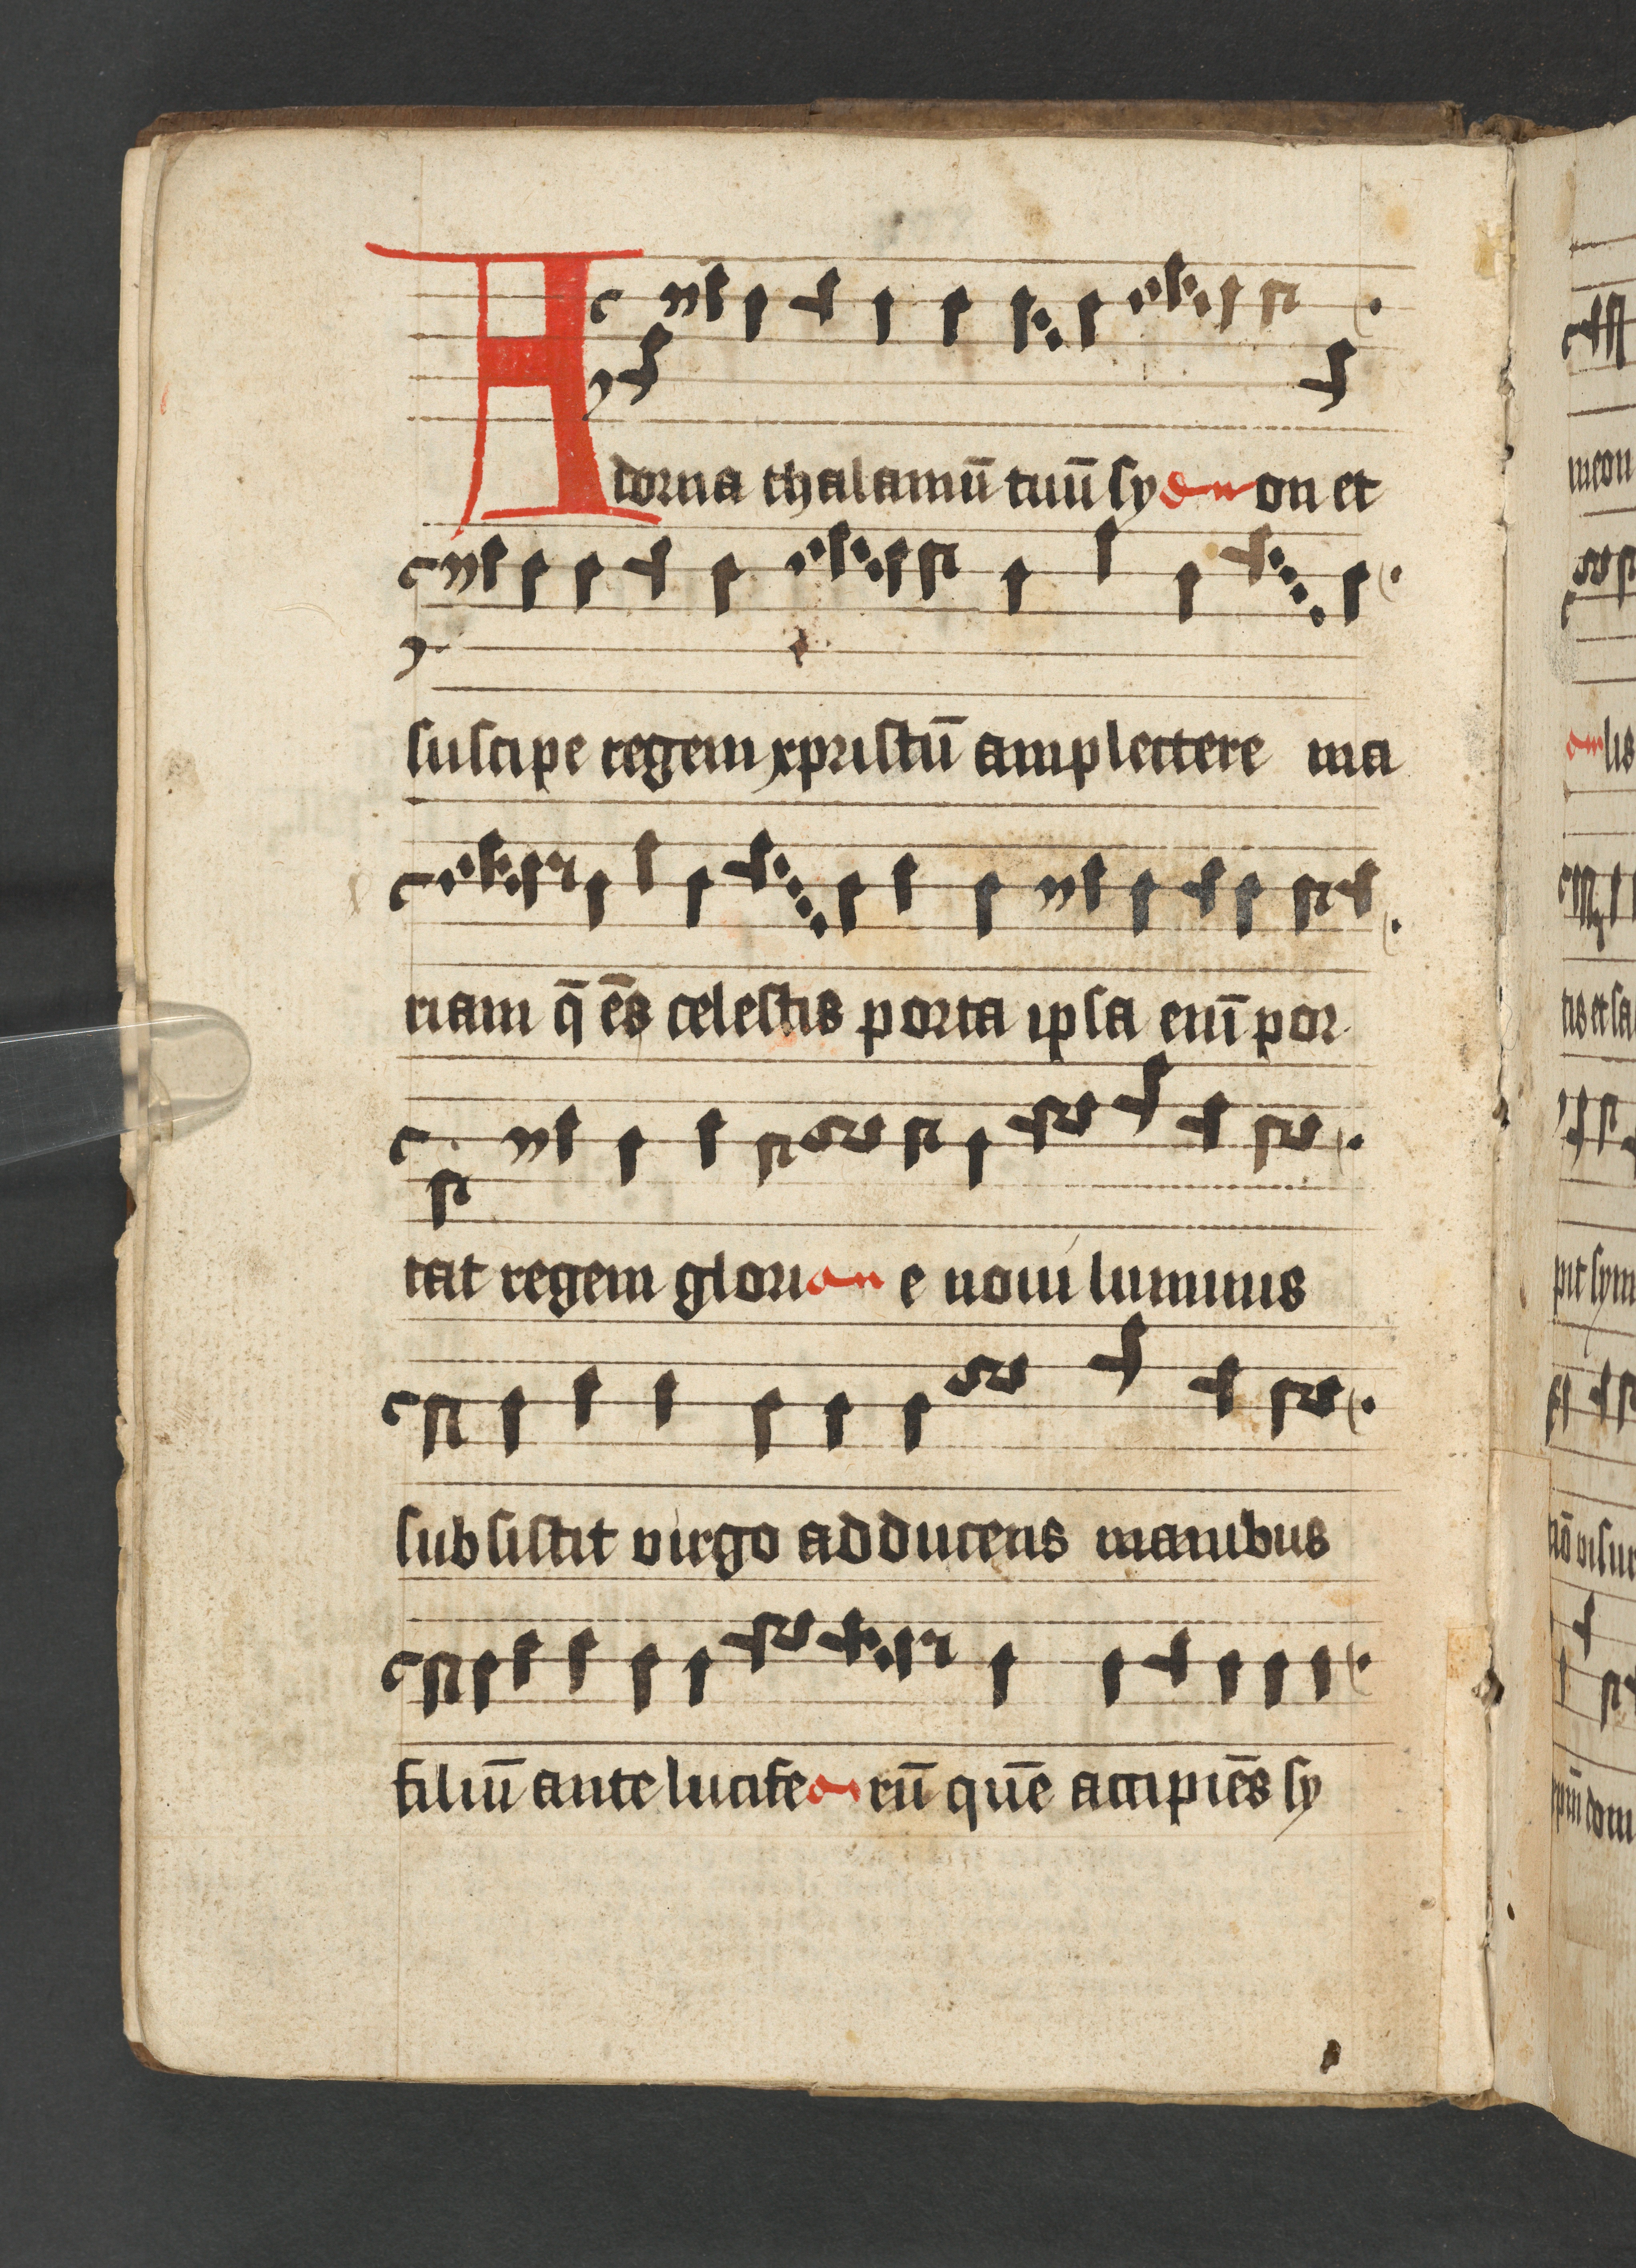 Adorna thalamū tuū sy on et
suscipe regem xpristū amplectere ma
riam q̄ ēs celestis porta ipsa enī por
tat regem glori e noui luminis
subsistit virgo adducens manibus
filiū ante lucife rū quē accipiēs sy